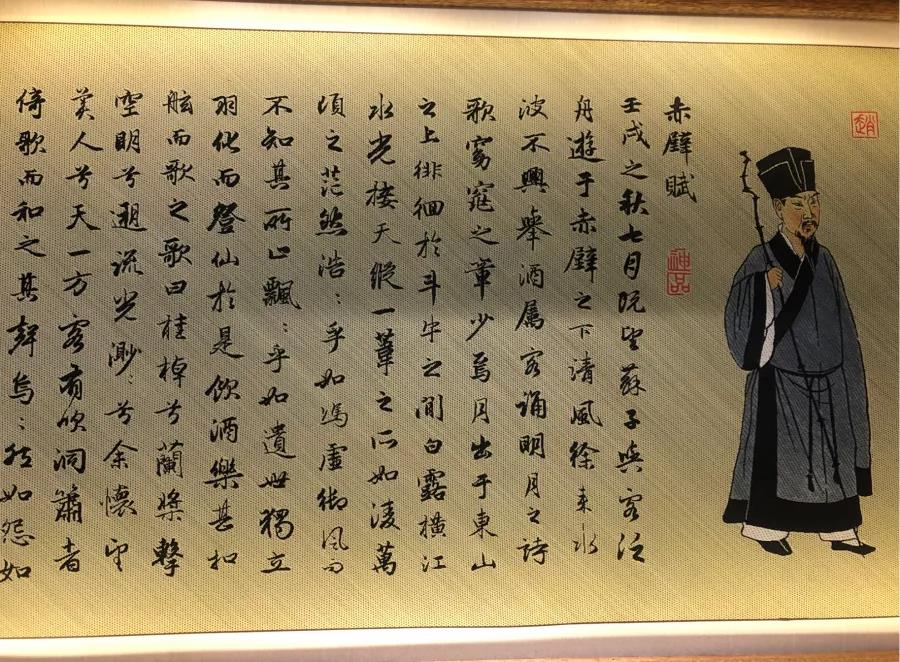 趙
赤壁賦
神品
壬戌之秋七月既望蘇子與客泛
舟遊于赤壁之下清風徐来水
波不興舉酒属客誦明月之詩
歌窈窕之章少焉月出于東山
之上徘徊於斗牛之間白露橫江
水光接天縱一葦之所如凌萬
頃之茫然浩々乎如馮虛御風而
不知其所止飄々乎如遺世獨立
羽化而登仙於是飲酒樂甚扣
舷而歌之歌曰桂棹兮蘭槳擊
空明兮遡流光渺々兮余懷望
美人兮天一方客有吹洞簫者
倚歌而和之其聲烏々然如怨如